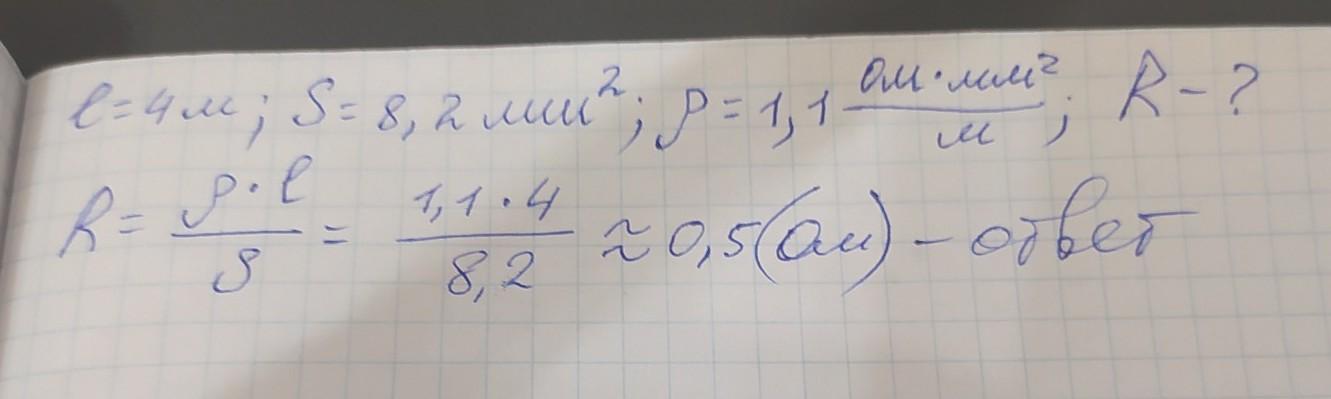 l=4м; S=8,2мм²; ρ=1,1 ом·мм²/м; R-?
R= ρ·l/S = 1,1·4/8,2 ≈0,5(Ом) - ответ